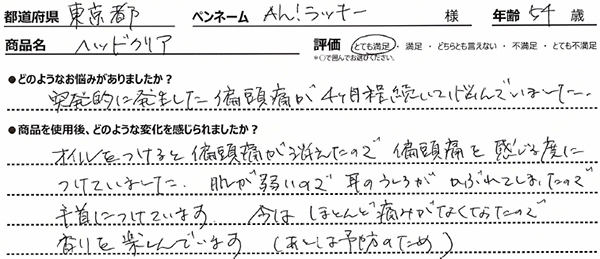 都道府県 東京都 ペンネーム Ah!ラッキー 様 年齢 54 歳
商品名 ヘッドクリア 評価 とても満足・満足・どちらとも言えない・不満足・とても不満足
*○で囲んでお選びください。
●どのようなお悩みがありましたか？
突発的に発生した偏頭痛が4ヶ月程続いて悩んでいました.
●商品を使用後、どのような変化を感じられましたか？
オイルをつけると偏頭痛が消えたので 偏頭痛を感じる度に
つけていました. 肌が弱いので 耳のうしろが かぶれてしまったので
手首につけています. 今は ほとんど痛みがなくなったので
香りを楽しんでいます (あとは予防のため)